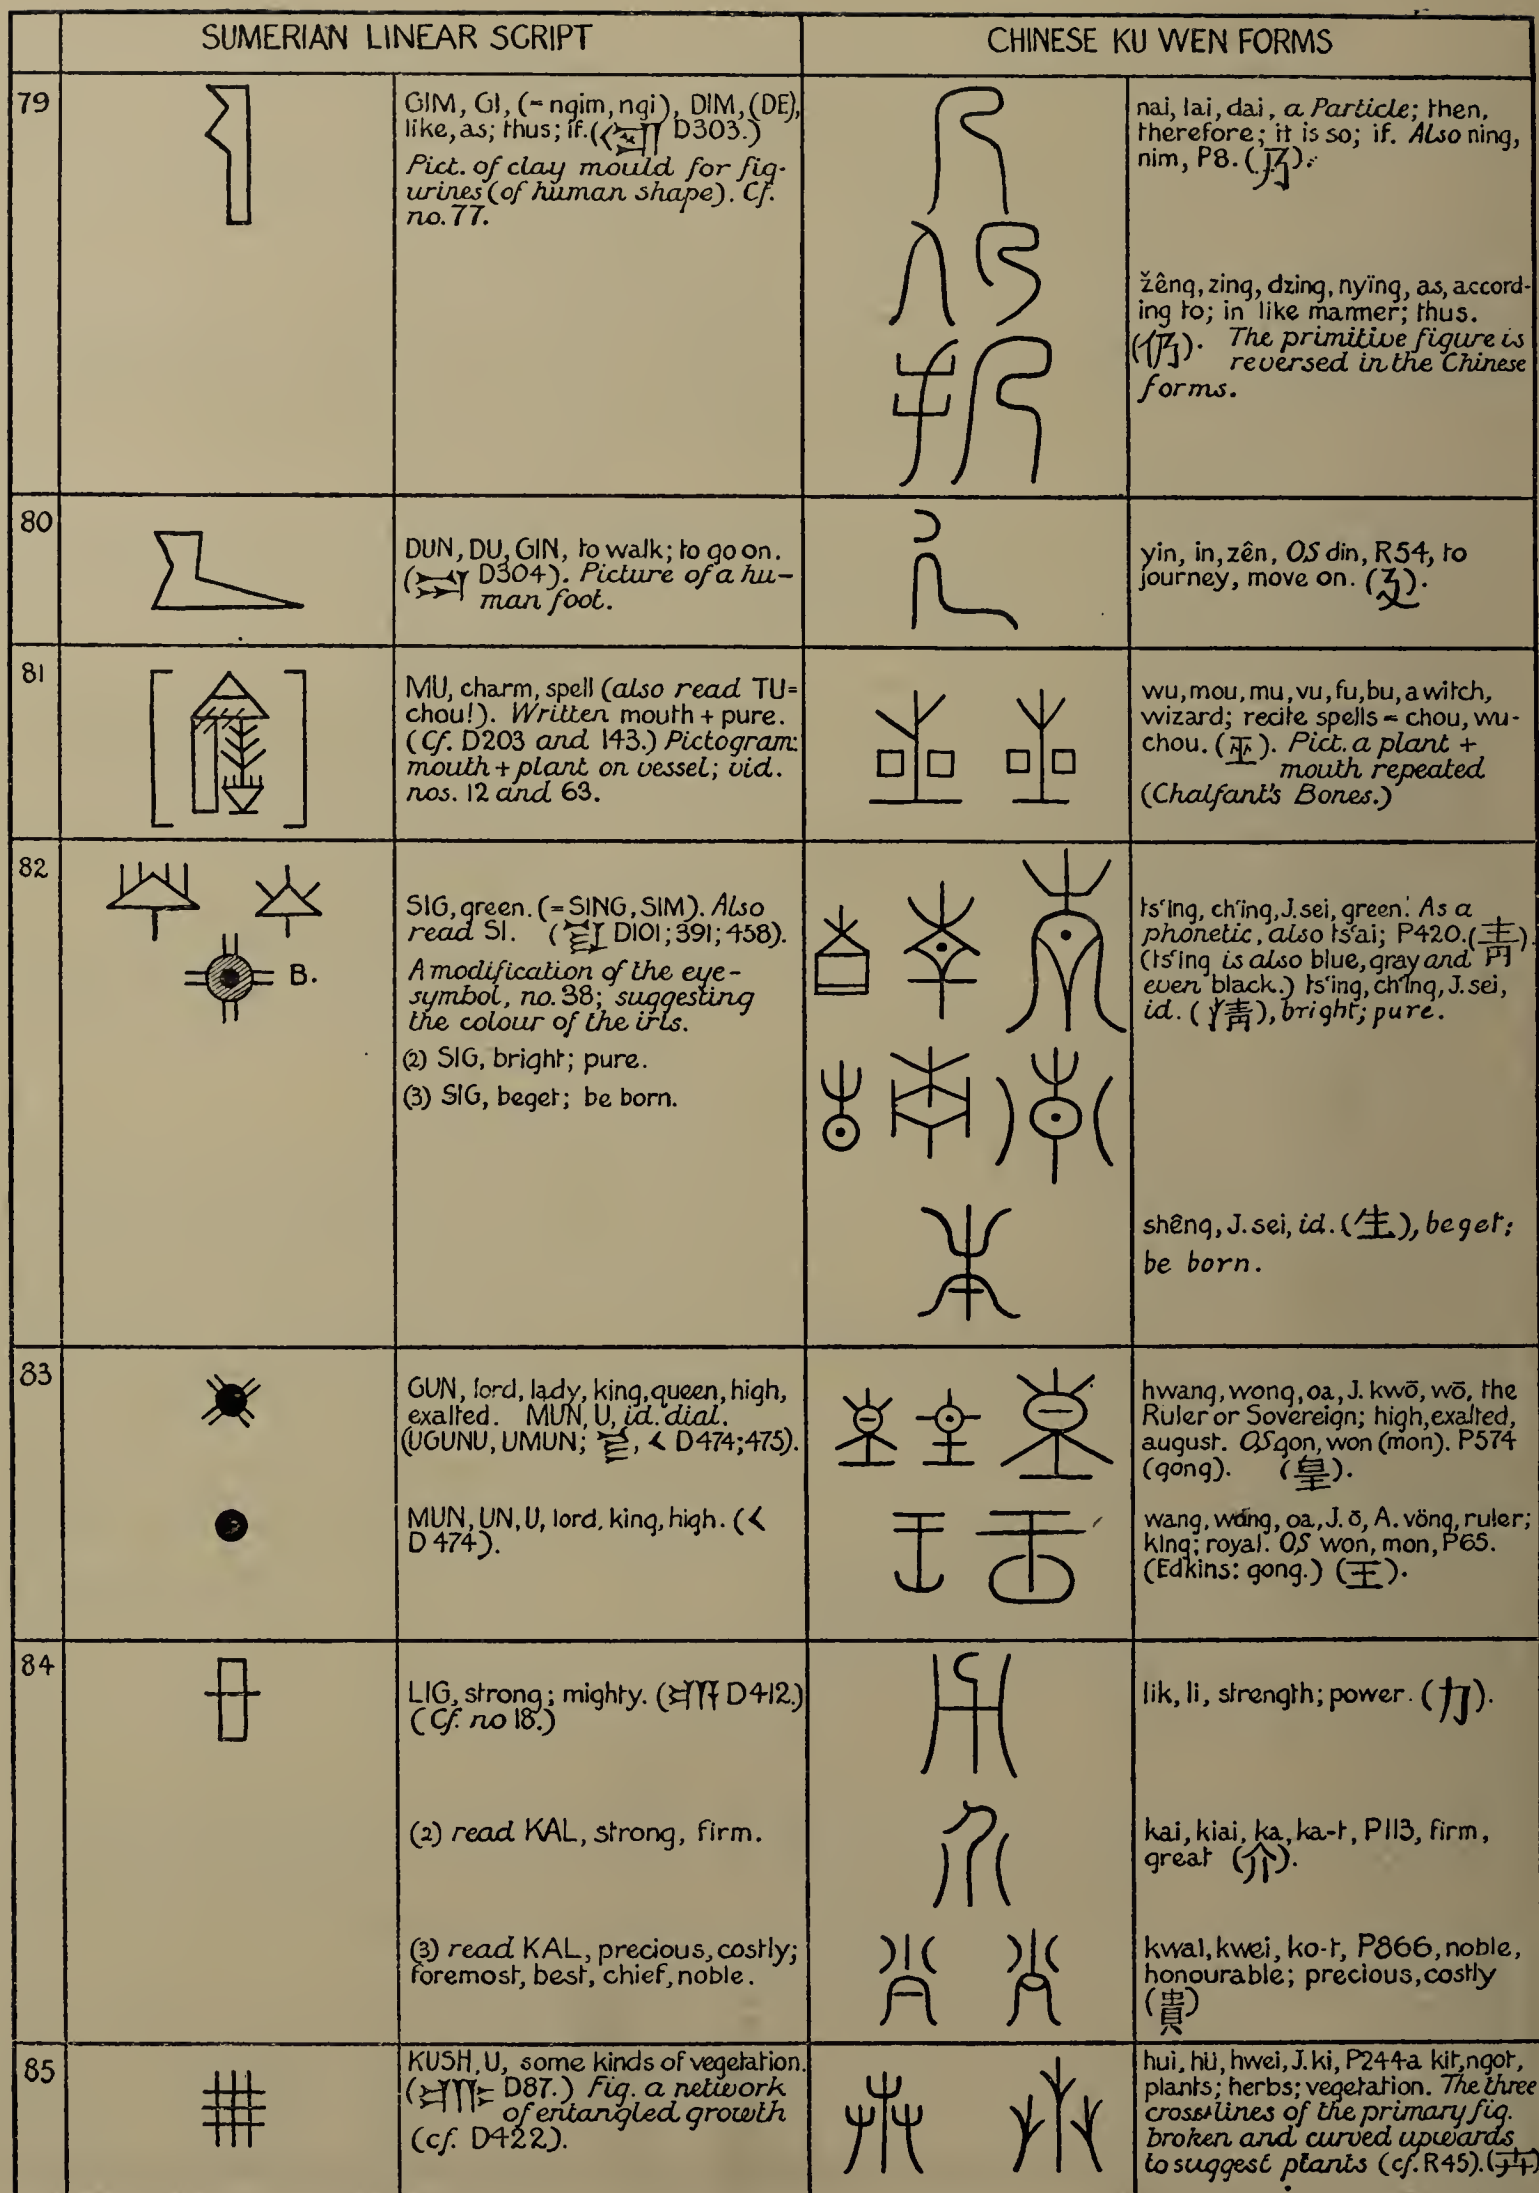 SUMERIAN LINEAR SCRIPT
CHINESE KU WEN FORMS
79
GIM, GI, (=ngim, ngi), DIM, (DE),
like, as; thus; if. ( D303.)
Pict. of clay mould for fig-
urines (of human shape). Cf.
no. 77.
nai, lai, dai, a Particle; then,
therefore; it is so; if. Also ning,
nim, P8. (乃).
žêng, zing, dzing, nyïng, as, accord-
ing to; in like manner; thus.
(仍). The primitive figure is
reversed in the Chinese
forms.
80
DUN, DU, GIN, to walk; to go on.
( D304). Picture of a hu-
man foot.
yin, in, zên, OS din, R54, to
journey, move on. (廴).
81
MU, charm, spell (also read TU=
chou!). Written mouth + pure.
(Cf. D203 and 143.) Pictogram:
mouth + plant on vessel; vid.
nos. 12 and 63.
wu, mou, mu, vu, fu, bu, a witch,
wizard; recite spells = chou, wu-
chou. (巫). Pict. a plant +
mouth repeated
(Chalfant's Bones.)
82
B.
SIG, green. (=SING, SIM). Also
read SI. ( D101; 391; 458).
A modification of the eye-
symbol, no. 38; suggesting
the colour of the iris.
(2) SIG, bright; pure.
(3) SIG, beget; be born.
ts'ing, ch'ing, J. sei, green. As a
phonetic, also ts'ai; P420. (靑).
(ts'ing is also blue, gray and
even black.) ts'ing, ch'ing, J. sei,
id. ( ), bright; pure.
shêng, J. sei, id. (生), beget;
be born.
83
GUN, lord, lady, king, queen, high,
exalted. MUN, U, id. dial.
(UGUNU, UMUN; , D474; 475).
MUN, UN, U, lord, king, high. (
D474).
hwang, wong, oa, J. kwō, wō, the
Ruler or Sovereign; high, exalted,
august. OS gon, won (mon). P574
(gong). (皇).
wang, wong, oa, J. ō, A. vöng, ruler;
king; royal. OS won, mon, P65.
(Edkins: gong.) (王).
84
LIG, strong; mighty. ( D412.)
(Cf. no 18.)
(2) read KAL, strong, firm.
(3) read KAL, precious, costly;
foremost, best, chief, noble.
lik, li, strength; power. (力).
kai, kiai, ka, ka-t, P113, firm,
great (介).
kwai, kwei, ko-t, P866, noble,
honourable; precious, costly
(貴)
85
KUSH, U, some kinds of vegetation.
( D87.) Fig. a network
of entangled growth
(cf. D422).
hui, hü, hwei, J. ki, P244a kit, ngot,
plants; herbs; vegetation. The three
cross-lines of the primary fig.
broken and curved upwards
to suggest plants (cf. R45). (卉)